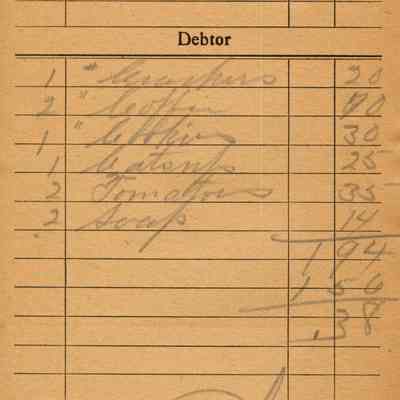 Debtor
1 " Crackers 20
2 " Coffee 70
1 " Cookies 30
1 Catsup 25
2 Tomatoes 35
2 Soap 14
194
156
.38